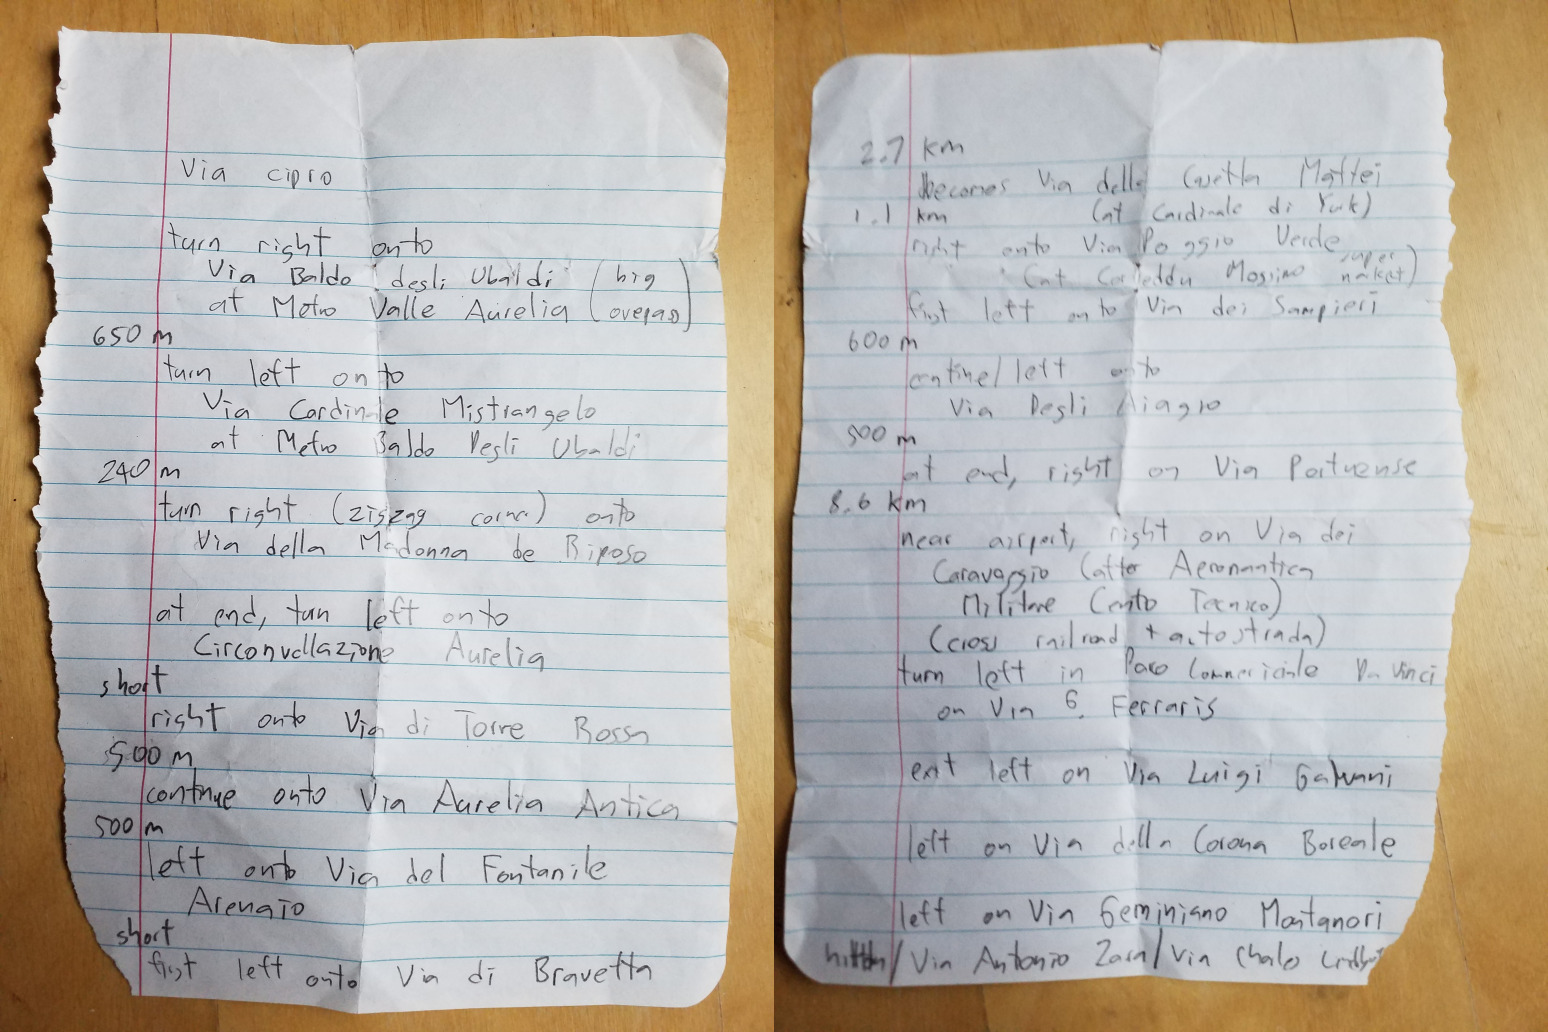 Via cipro
turn right onto
Via Baldo degli Ubaldi (big
at Metro Valle Aurelia overpas)
650 m
turn left onto
Via Cardinale Mistrangelo
at Metro Baldo Degli Ubaldi
240 m
turn right (zigzag corner) onto
Via della Madonna de Riposo
at end, turn left onto
Circonvallazione Aurelia
short
right onto Via di Torre Rossa
500 m
continue onto Via Aurelia Antica
500 m
left onto Via del Fontanile
Arenaio
short
first left onto Via di Bravetta
2.7 km
becomes Via della Casetta Mattei
1.1 km (at Cardinale di York)
right onto Via Poggio Verde
(at Massimo super market)
first left onto Via dei Sampieri
600 m
left onto
Via Degli
500 m
at end, right on Via Portuense
8.6 km
near airport, right on Via dei
Caravaggio (after Aeronautica
Militare Cento Tecnico)
(cross railroad + autostrada)
turn left in Parco Commerciale Da Vinci
on Via G. Ferraris
exit left on Via Luigi Galvani
left on Via della Corona Boreale
left on Via Geminiano Montanari
/Via Antonio Zara/Via